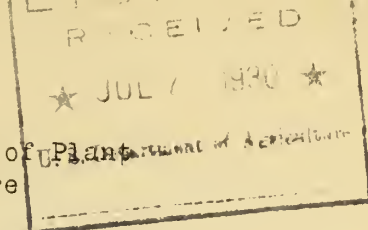 RECEIVED
★ JUL 7 1930 ★
of Plant
U. S. Department of Agriculture
re